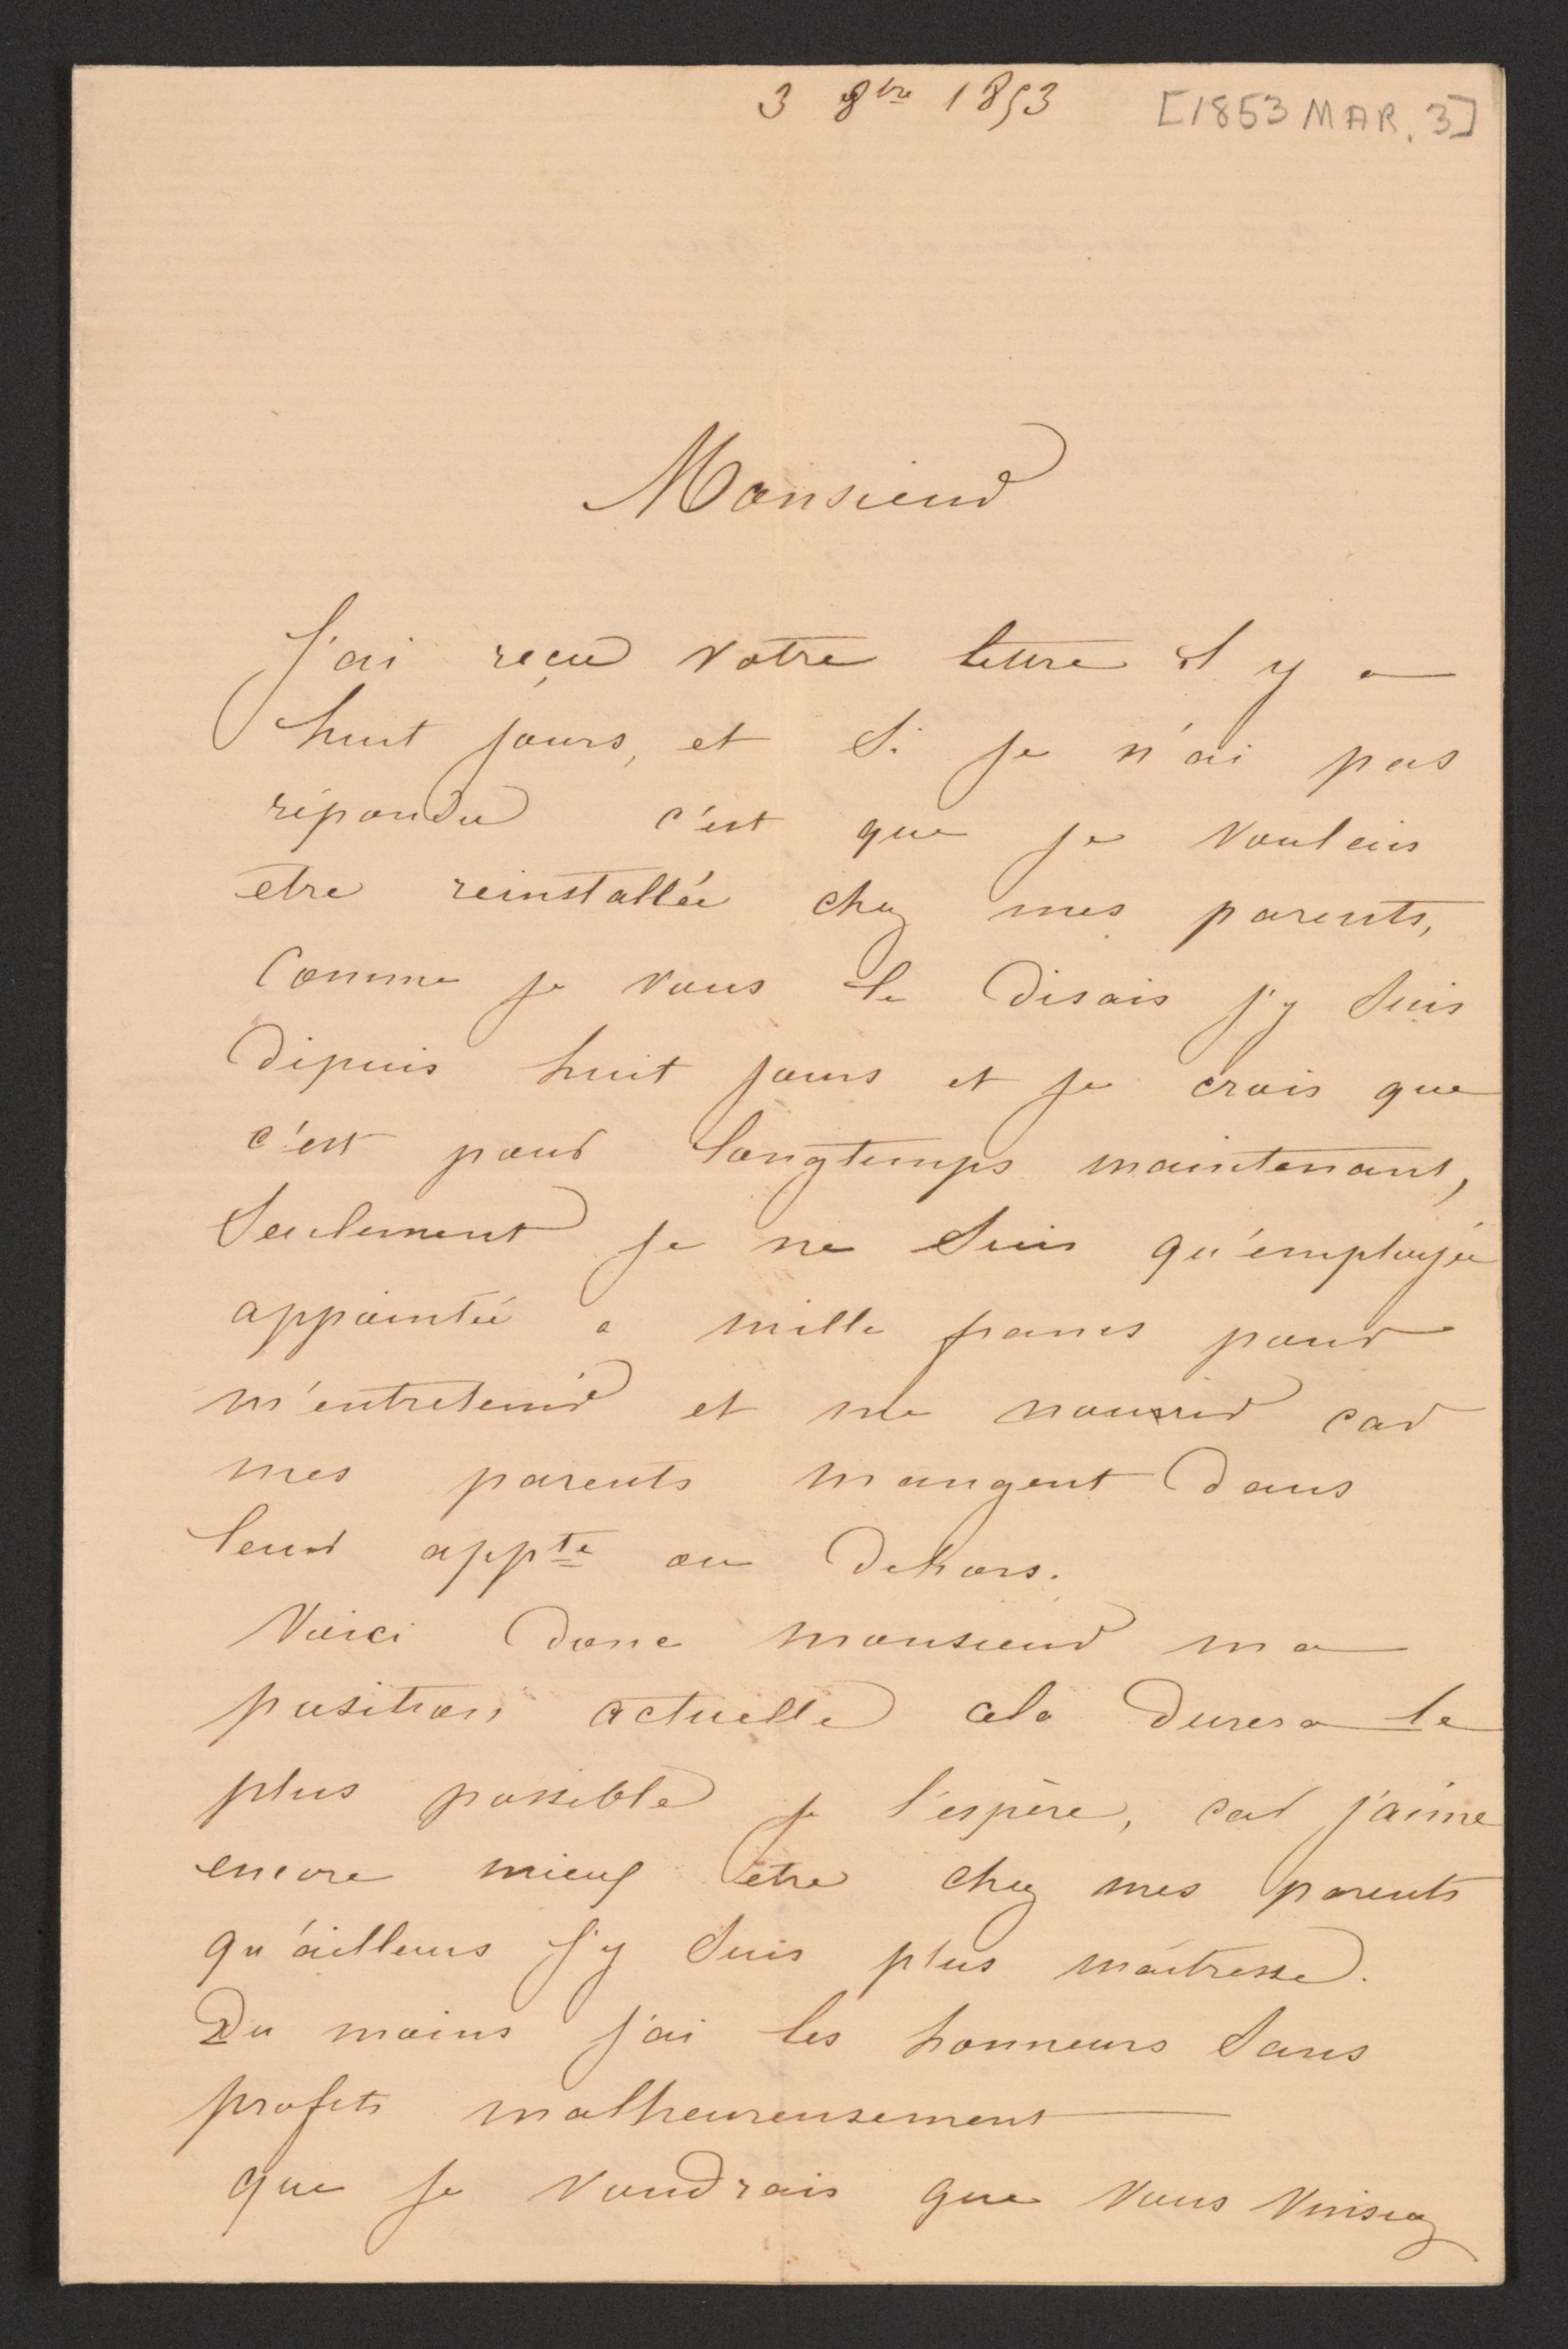 3 8bre 1853 [1853 MAR. 3]
Monsieur
J'ai reçu votre lettre il y a
huit jours, et si je n'ai pas
répondu c'est que je voulais
etre reinstallée chez mes parents,
Comme je vous le disais j'y suis
dépuis huit jours et je crois que
c'est pour longtemps maintenant,
Seulement je ne suis qu'employée
appointée a mille francs pour
m'entretenir et me nourrir car
mes parents mangent dans
leur appte ou dehors.
Voici donc monsieur ma
position actuelle cela durera le
plus possible je l'espère, car j'aime
encore mieux être chez mes parents
qu'ailleurs j'y suis plus maîtresse.
Du moins j'ai les honneurs sans
profits malheureusement
que je voudrais que vous vinsiez